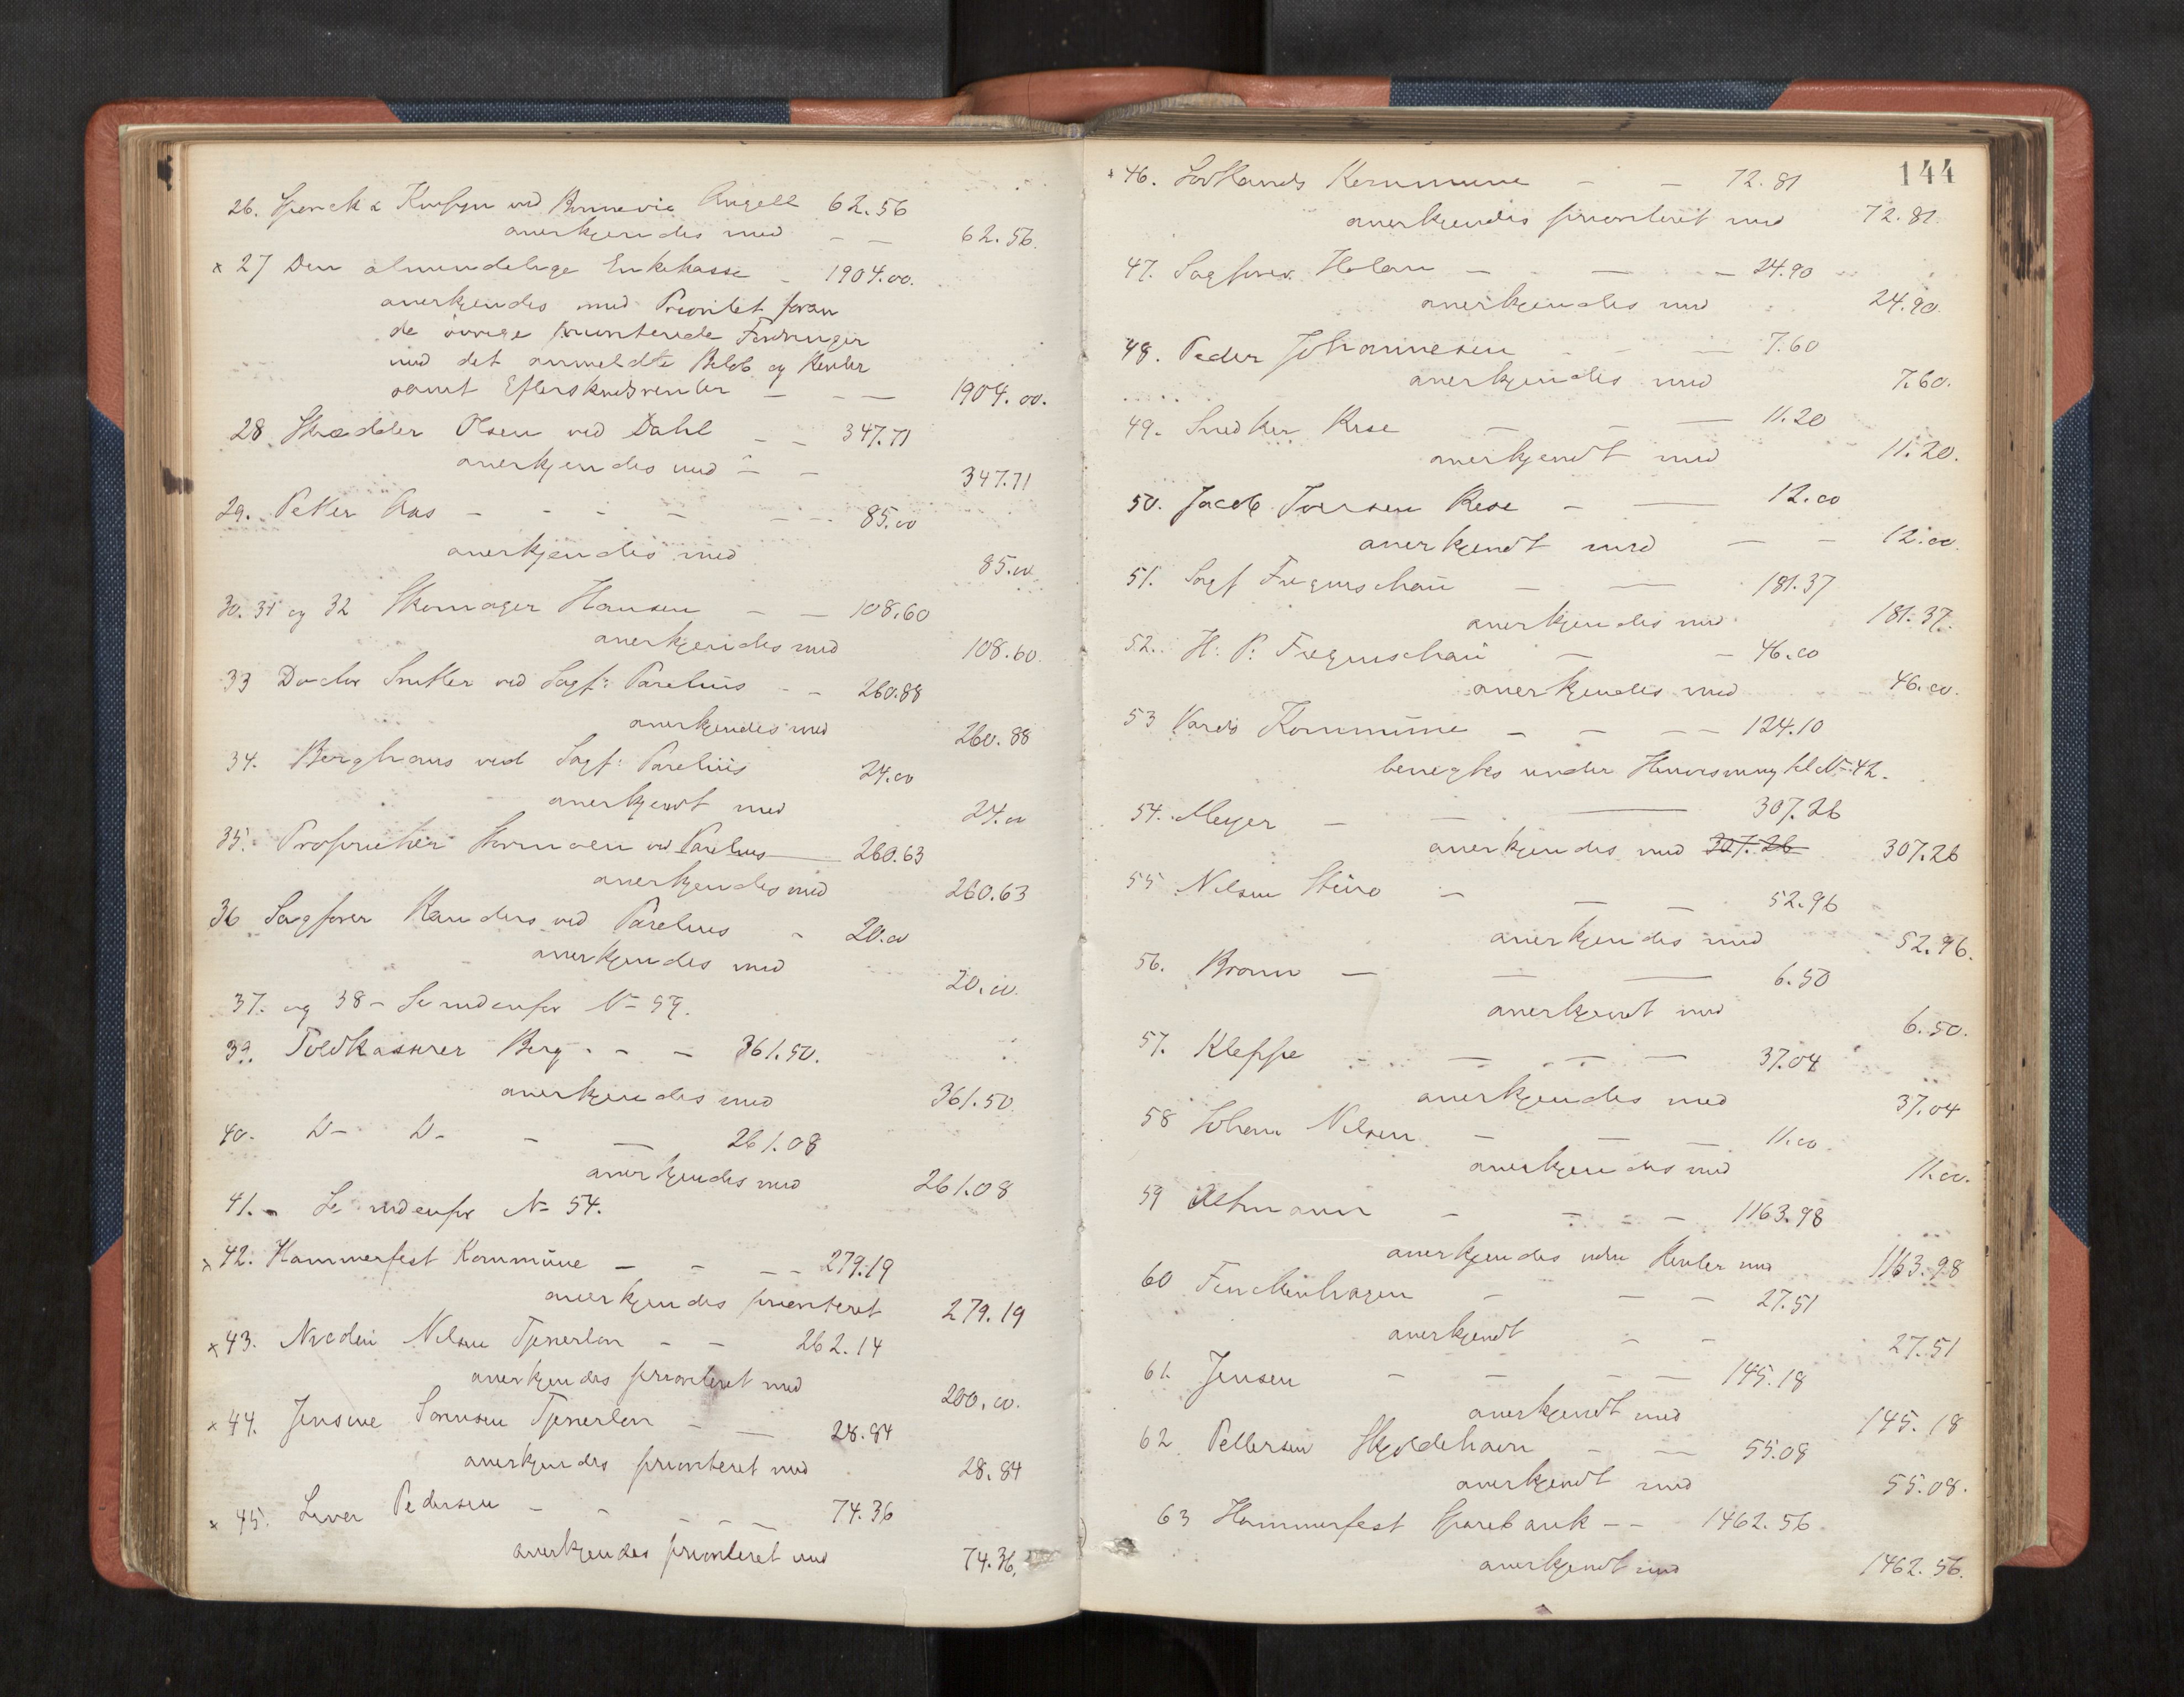 26. Sperck & ved Bonnevie Angell 62.56
anerkjendes med — — 62.56.
x 27 Den almindelige Enkekasse - 1904.00.
anerkjendes med Prioritet foran
de øvrige prioriterede Fordringer
med det anmeldte Beløb og Renter
samt Efterskudsrenter — — — 1904.00.
28. Skrædder Olsen ved Dahl — — 347.71
anerkjendes med — — 347.71
29. Petter Aas — — — — 85.00
anerkjendes med 85.00
30. 31 og 32 Skomager Hansen — — 108.60
anerkjendes med 108.60.
33 Doctor ved Sagf: Parelius - - 260.88
anerkjendes med 260.88
34. Berghaus ved Sagf: Parelius 24.00
anerkjendt med 24.00
35. Proprietær ved Parelius — 260.63
anerkjendes med 260.63
36 Sagfører Randers ved Parelius - 20.00
anerkjendes med 20.00.
37. og 38 - Se nedenfor No 57.
39. Toldkasserer Berg - - - 361.50.
anerkjendes med 361.50.
40. D- D- - — 261.08
anerkjendes med 261.08
41. - Se nedenfor No 54.
x 42. Hammerfest Kommune — - - - 279.19
anerkjendes prioriteret 279.19
x 43. Nilsen Tjenerløn - - 262.14
anerkjendes prioriteret med 200.00.
x 44. Jensine Tjenerløn - — 28.84
anerkjendes prioriteret med 28.84
x 45. Pedersen - - - - - 74.36
anerkjendes prioriteret med 74.36.
144
x 46. Kommune - - 72.81
anerkjendes prioriteret med 72.81.
47. Sagfører Holan - - — - 24.90
anerkjendes med 24.90.
48. Peder Johannesen - - — 7.60
anerkjendes med 7.60.
49. Snedker — - — 11.20
anerkjendt med 11.20.
50. Jacob Iversen - — 12.00
anerkjendt med — - 12.00.
51. Sagf — — 181.37
anerkjendes med 181.37.
52. H. P. — - 46.00
anerkjendes med 46.00.
53 Vardø Kommune — - - - 124.10
benegtes under Henvisning til No 42.
54. Meyer - - — 307.26
anerkjendes med 307.26 307.26
55 Nilsen - — - 52.96
anerkjendes med 52.96.
56. Bronn — — — 6.50
anerkjendt med 6.50.
57. Kleppe - — - — 37.04
anerkjendes med 37.04
58 Johan Nilsen - — — 11.00.
anerkjendes med 11.00.
59 - - - - 1163.98
anerkjendes uden Renter med 1163.98
60 Finckenhagen - — - 27.51
anerkjendt - - 27.51
61. Jensen - - - — 145.18
anerkjendt med 145.18
62. Pettersen - — 55.08
anerkjendt med 55.08.
63 Hammerfest Sparebank - - 1462.56.
anerkjendt med 1462.56.